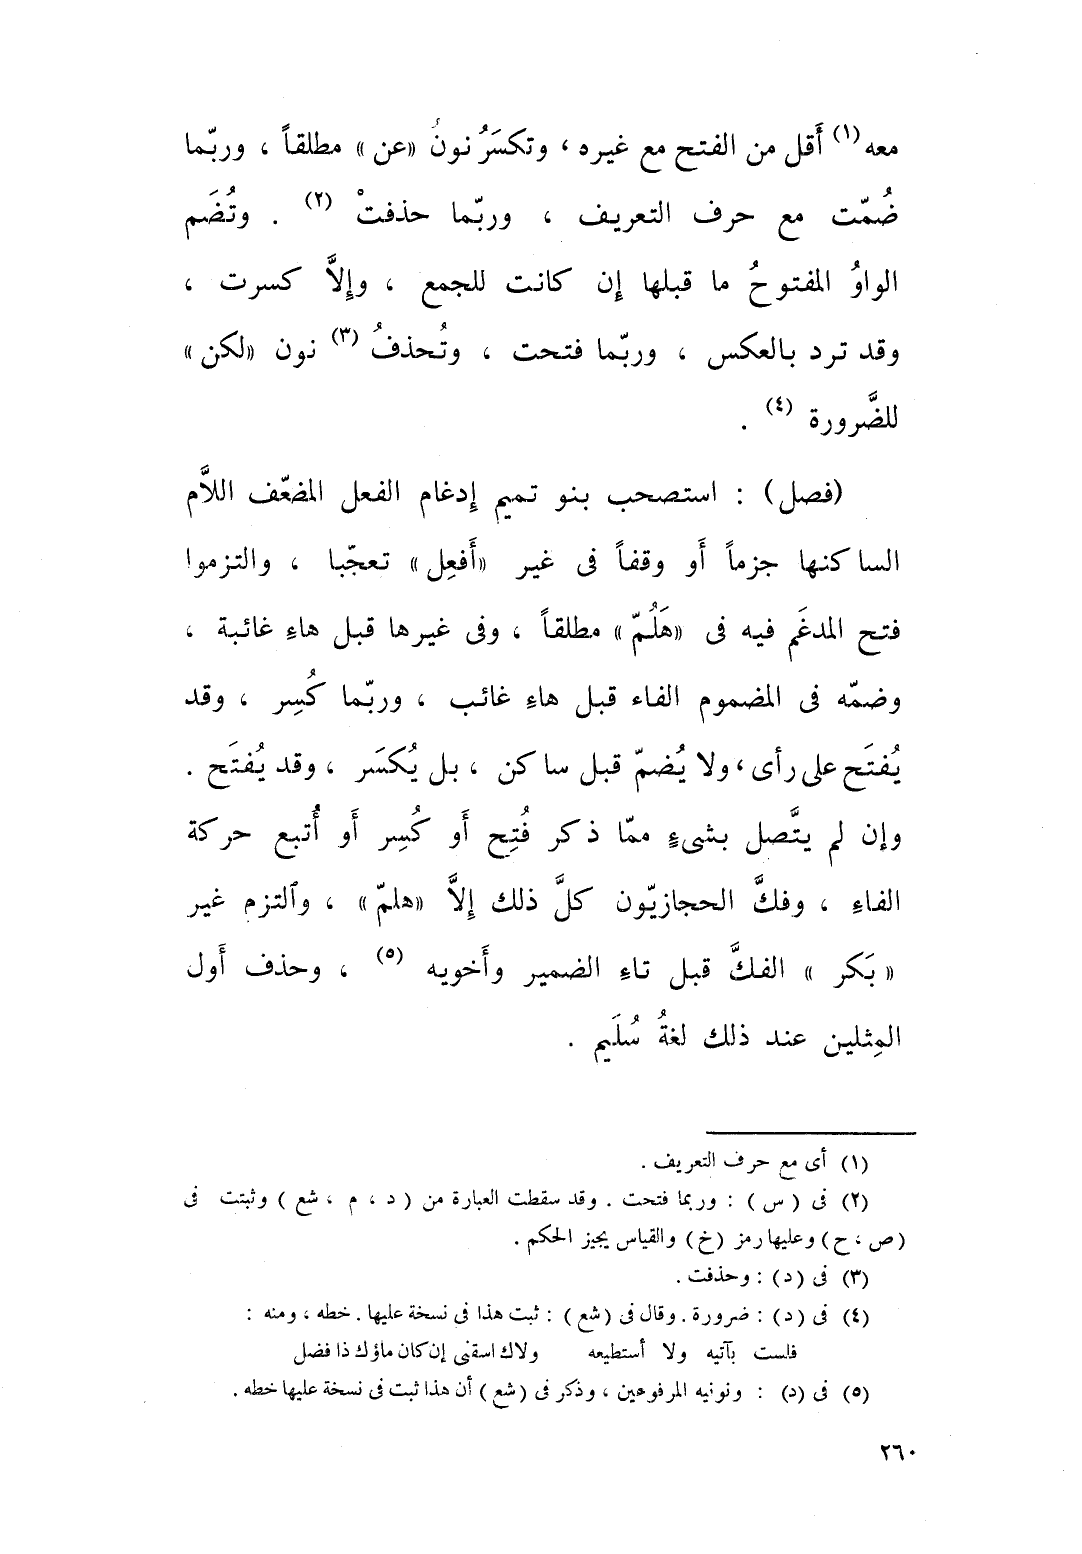 معه (١) أَقل من الفتح مع غيره ، وتكسَرُ نونُ «عن» مطلقاً ، وربّما
ضُمّت مع حرف التعريف ، وربّما حذفتْ (٢) . وتُضَم
الواوُ المفتوحُ ما قبلها إن كانت للجمع ، وإِلاَّ كسرت ،
وقد ترد بالعكس ، وربّما فتحت ، وتُحذفُ (٣) نون «لكن»
للضَّرورة (٤) .
(فصل) : استصحب بنو تميم إِدغام الفعل المضعّف اللاَّم
الساكنها جزماً أَو وقفاً فى غير «أَفعِل» تعجّبا ، والتزموا
فتح المدغَم فيه فى «هَلُمّ» مطلقاً ، وفى غيرها قبل هاءِ غائبة ،
وضمّه فى المضموم الفاء قبل هاءِ غائب ، وربّما كُسِر ، وقد
يُفتَح على رأى ، ولا يُضمّ قبل ساكن ، بل يُكسَر ، وقد يُفتَح .
وإن لم يتَّصل بشىءٍ ممّا ذكر فُتِح أَو كُسِر أَو أُتبع حركة
الفاءِ ، وفكَّ الحجازيّون كلَّ ذلك إِلاَّ «هلمّ» ، وٱلتزم غير
«بَكر» الفكَّ قبل تاءِ الضمير وأَخويه (٥) ، وحذف أَول
المِثلين عند ذلك لغةُ سُلَيم .
(١) أى مع حرف التعريف .
(٢) فى ( س ) : وربما فتحت . وقد سقطت العبارة من ( د ، م ، شع ) وثبتت فى
( ص ، ح ) وعليها رمز ( خ ) والقياس يجيز الحكم .
(٣) فى (د) : وحذفت .
(٤) فى (د) : ضرورة . وقال فى (شع) : ثبت هذا فى نسخة عليها . خطه ، ومنه :
فلست بآتيه ولا أستطيعه ولاك اسقنى إن كان ماؤك ذا فضل
(٥) فى (د) : ونونيه المرفوعين ، وذكر فى (شع) أن هذا ثبت فى نسخة عليها خطه .
٢٦٠